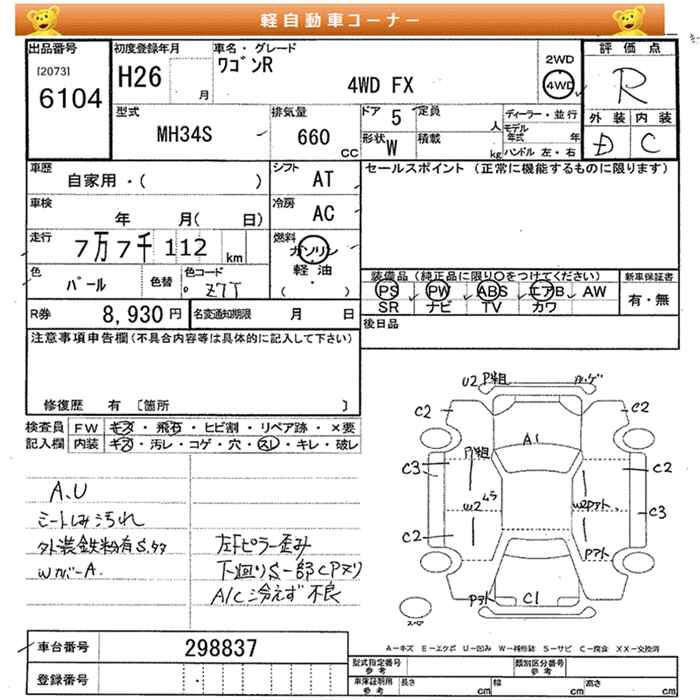 軽自動車コーナー
出品番号
[2073]
6104
初度登録年月
H26
月
車名・グレード
ワゴンR
4WD FX
2WD
4WD
評価点
R
外装 内装
D C
型式
MH34S
排気量
660
CC
ドア 5
定員
人
形状 W
積載
kg
ディーラー・並行
モデル年式 年
ハンドル 左・右
車歴
自家用・( )
シフト
AT
車検
年 月( 日)
冷房
AC
走行
7万7千112 km
燃料
ガソリン
軽油
( ・ )
色
パール
色替
色コード
Z7T
R券
8,930 円
名変通知期限 月 日
セールスポイント (正常に機能するものに限ります)
装備品 (純正品に限り○をつけてください)
PS PW ABS エアB AW
SR ナビ TV カワ
新車保証書
有・無
後日品
注意事項申告欄 (不具合内容等は具体的に記入して下さい)
修復歴 有 [箇所 ]
検査員 FW キズ・飛石・ヒビ割・リペア跡・×要
記入欄 内装 キズ・汚レ・コゲ・穴・スレ・キレ・破レ
A.U
シートしみ汚れ
外装鉄粉有
WカバーA.
左Fピラー歪み
下廻りS一部CPヌリ
A/C冷えず不良
U2
C2
C2
A1
C3
C2
W2
C3
C2
C1
A−キズ E−エクボ U−凹み W−補修跡 S−サビ C−腐食 XX−交換済
車台番号
298837
登録番号
型式指定番号
参考
類別区分番号
参考
車庫証明用
参考
長さ cm 幅 cm 高さ cm